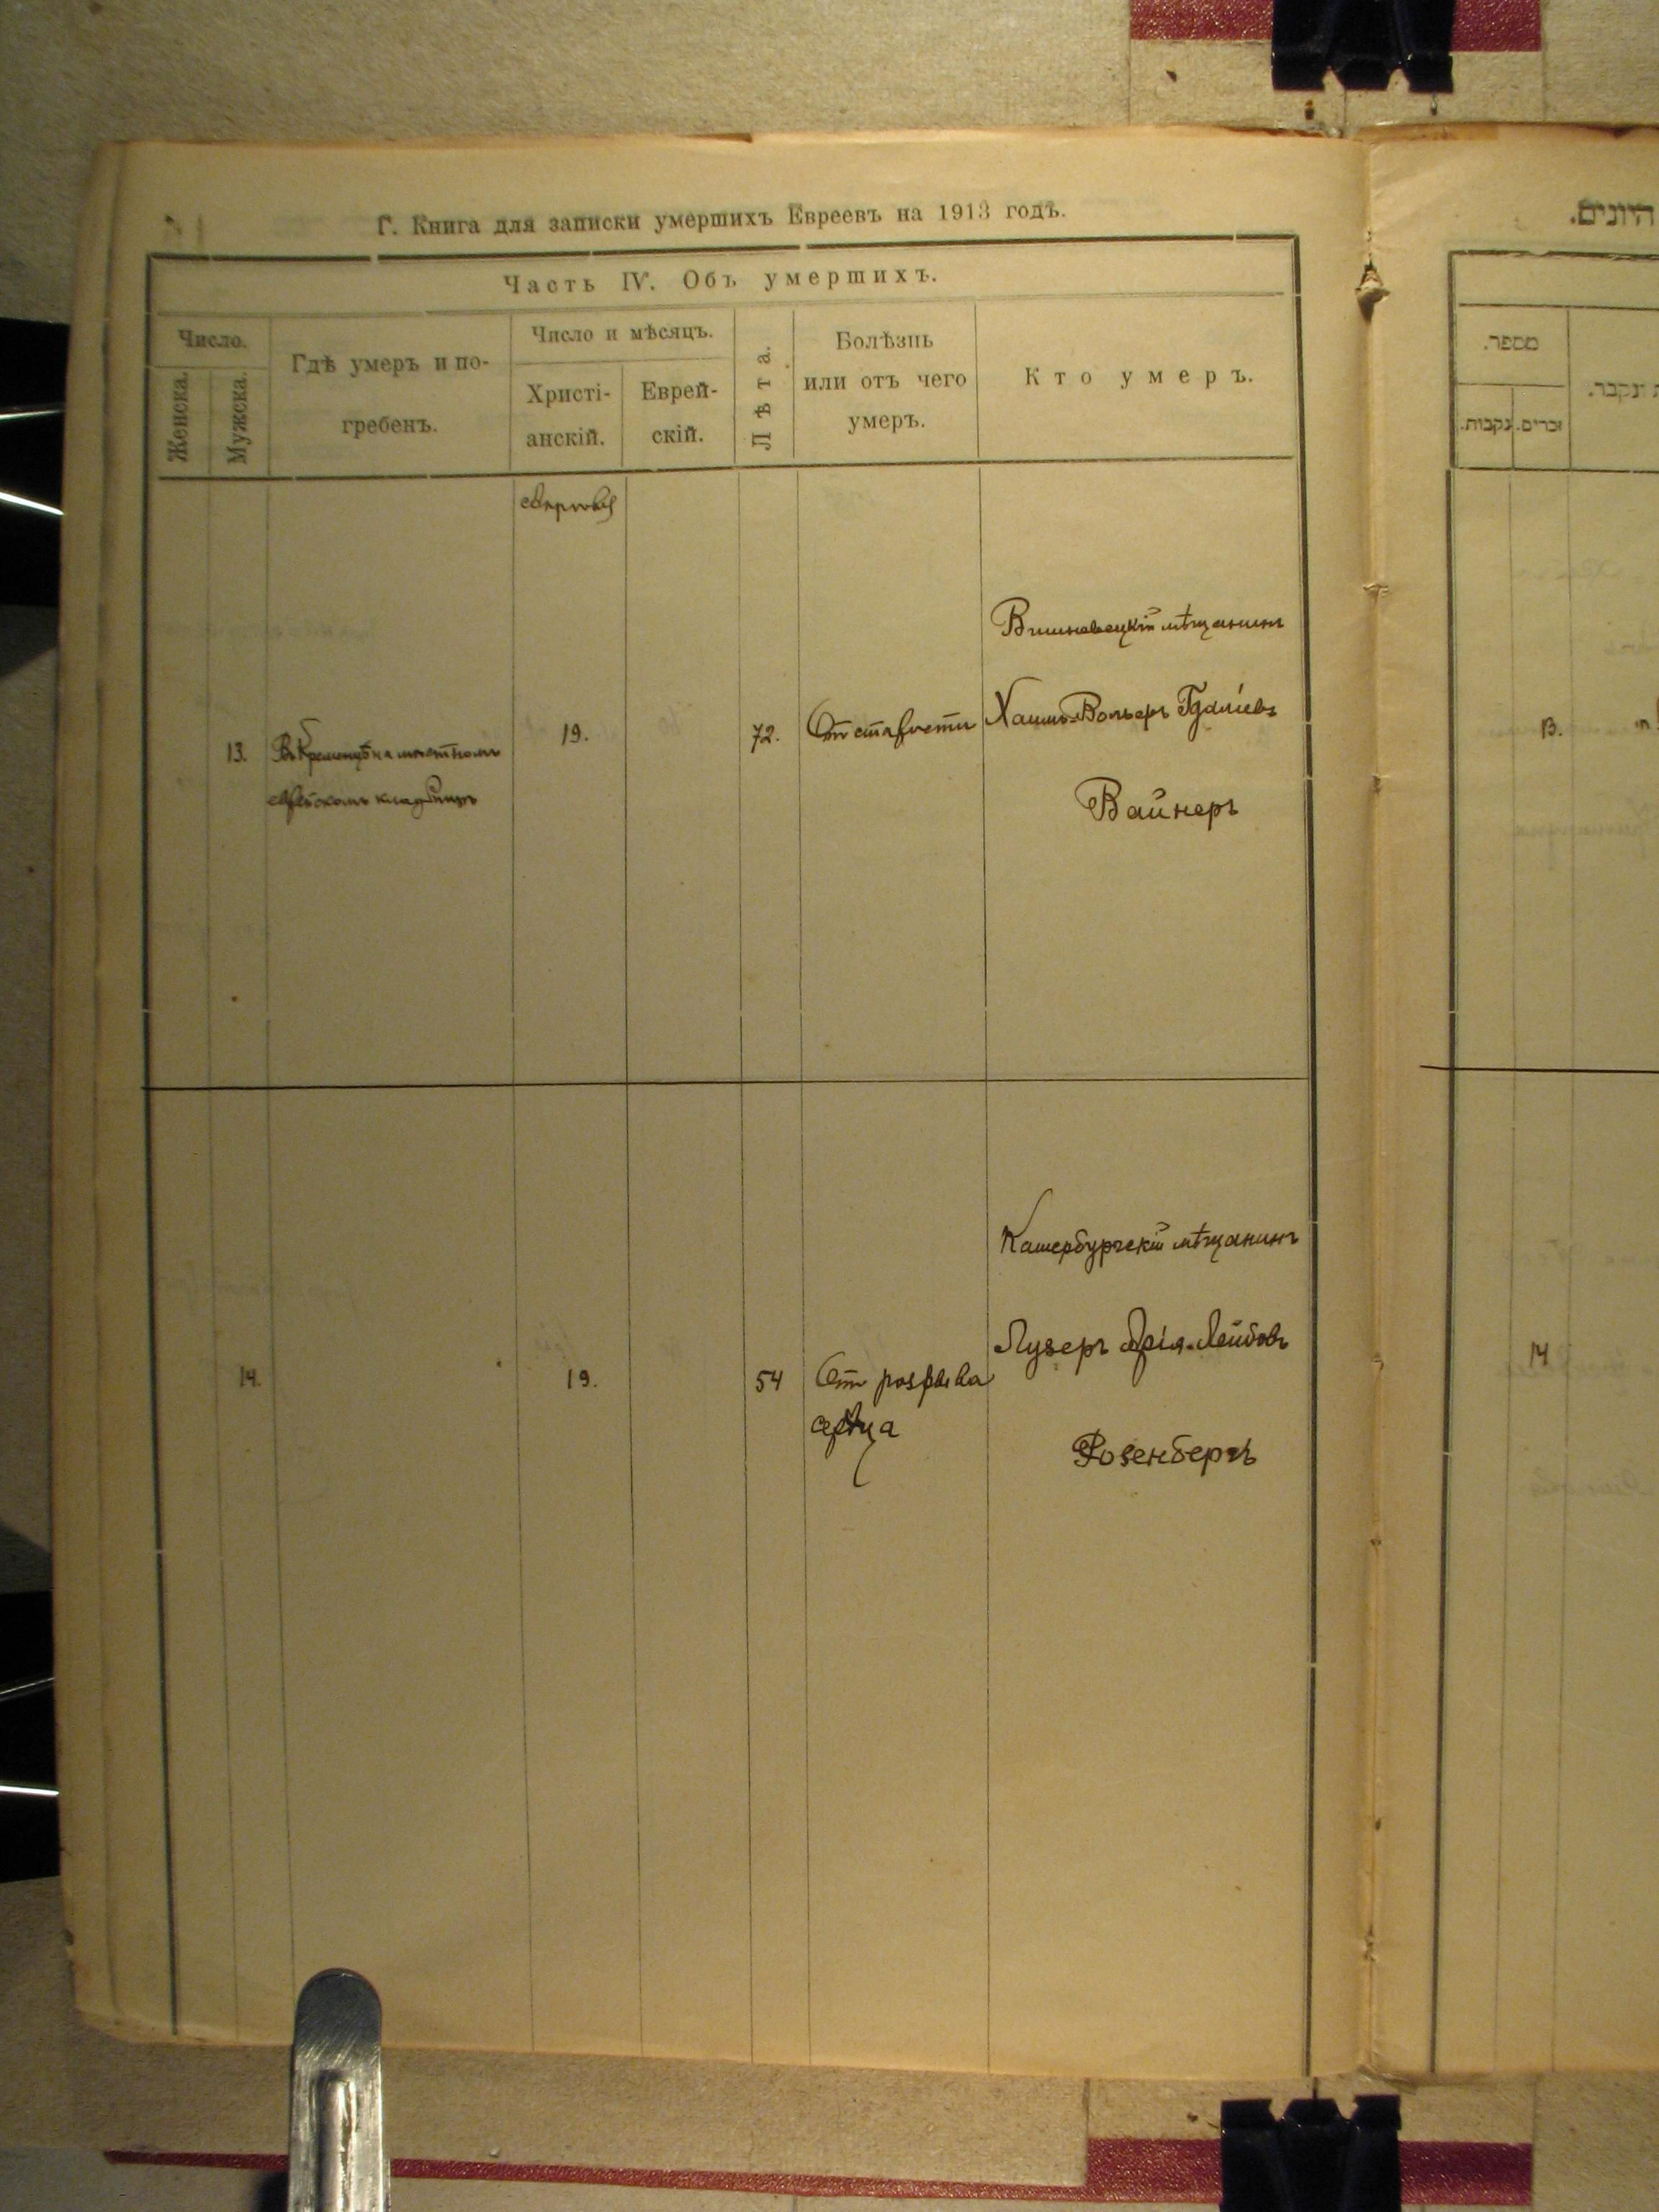 Г. Книга для записки умершихъ Евреевъ на 1913 годъ.
Часть IV. Объ умершихъ.
Число.
Женска.
Мужска.
Гдѣ умеръ и по-
гребенъ.
Число и мѣсяцъ.
Христі-
анскій.
Еврей-
скій.
Лѣта.
Болѣзнь
или отъ чего
умеръ.
Кто умеръ.
13.
Въ Кременцѣ на мѣстномъ
еврейскомъ кладбищѣ
19.
72.
От старости
Вишневецкій мѣщанинъ
Хаимъ-Вольфъ Гдаліевъ
Вайнеръ
14.
19.
54
От розрыва
сердца
Катербургскій мѣщанинъ
Лузеръ Арія-Лейбовъ
Розенбергъ
היונים.
מספר.
זכרים.
נקבות.
ונקבר.
13.
14